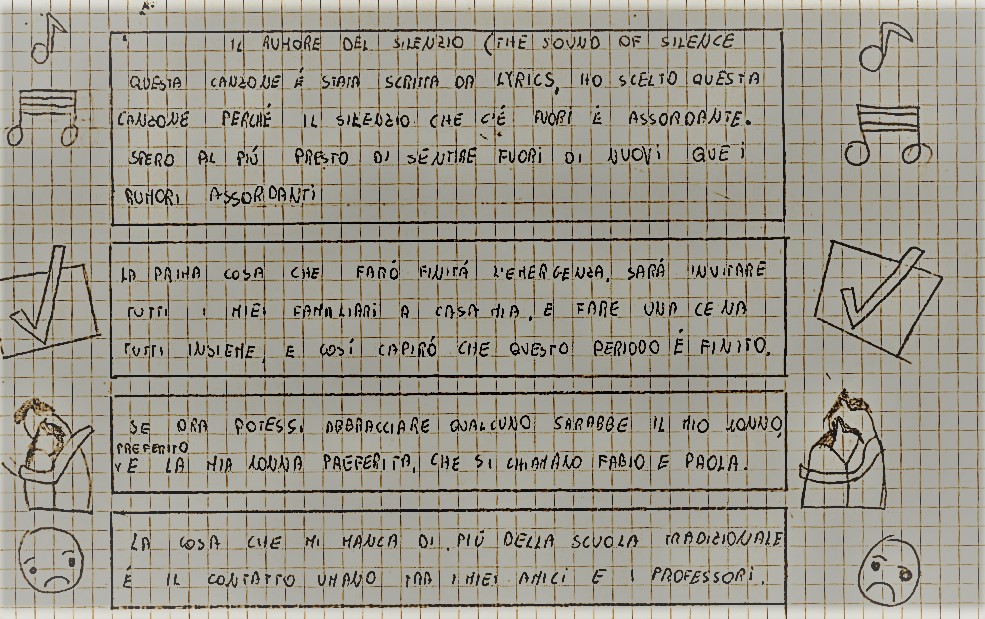 IL RUMORE DEL SILENZIO (THE SOUND OF SILENCE
QUESTA CANZONE É STATA SCRITTA DA LYRICS, HO SCELTO QUESTA
CANZONE PERCHÉ IL SILENZIO CHE C'É FUORI É ASSORDANTE.
SPERO AL PIÚ PRESTO DI SENTIRE FUORI DI NUOVI QUEI
RUMORI ASSORDANTI
LA PRIMA COSA CHE FARÓ FINITÁ L'EMERGENZA, SARÁ INVITARE
TUTTI I MIEI FAMALIARI A CASA MIA, E FARE UNA CENA
TUTTI INSIEME, E COSÍ CAPIRÓ CHE QUESTO PERIODO É FINITO.
SE ORA POTESSI ABBRACCIARE QUALCUNO SARABBE IL MIO NONNO,
PREFERITO
E LA MIA NONNA PREFERITA, CHE SI CHIAMANO FABIO E PAOLA.
LA COSA CHE MI MANCA DI PIÚ DELLA SCUOLA TRADIZIONALE
É IL CONTATTO UMANO TRA I MIEI AMICI E I PROFESSORI.